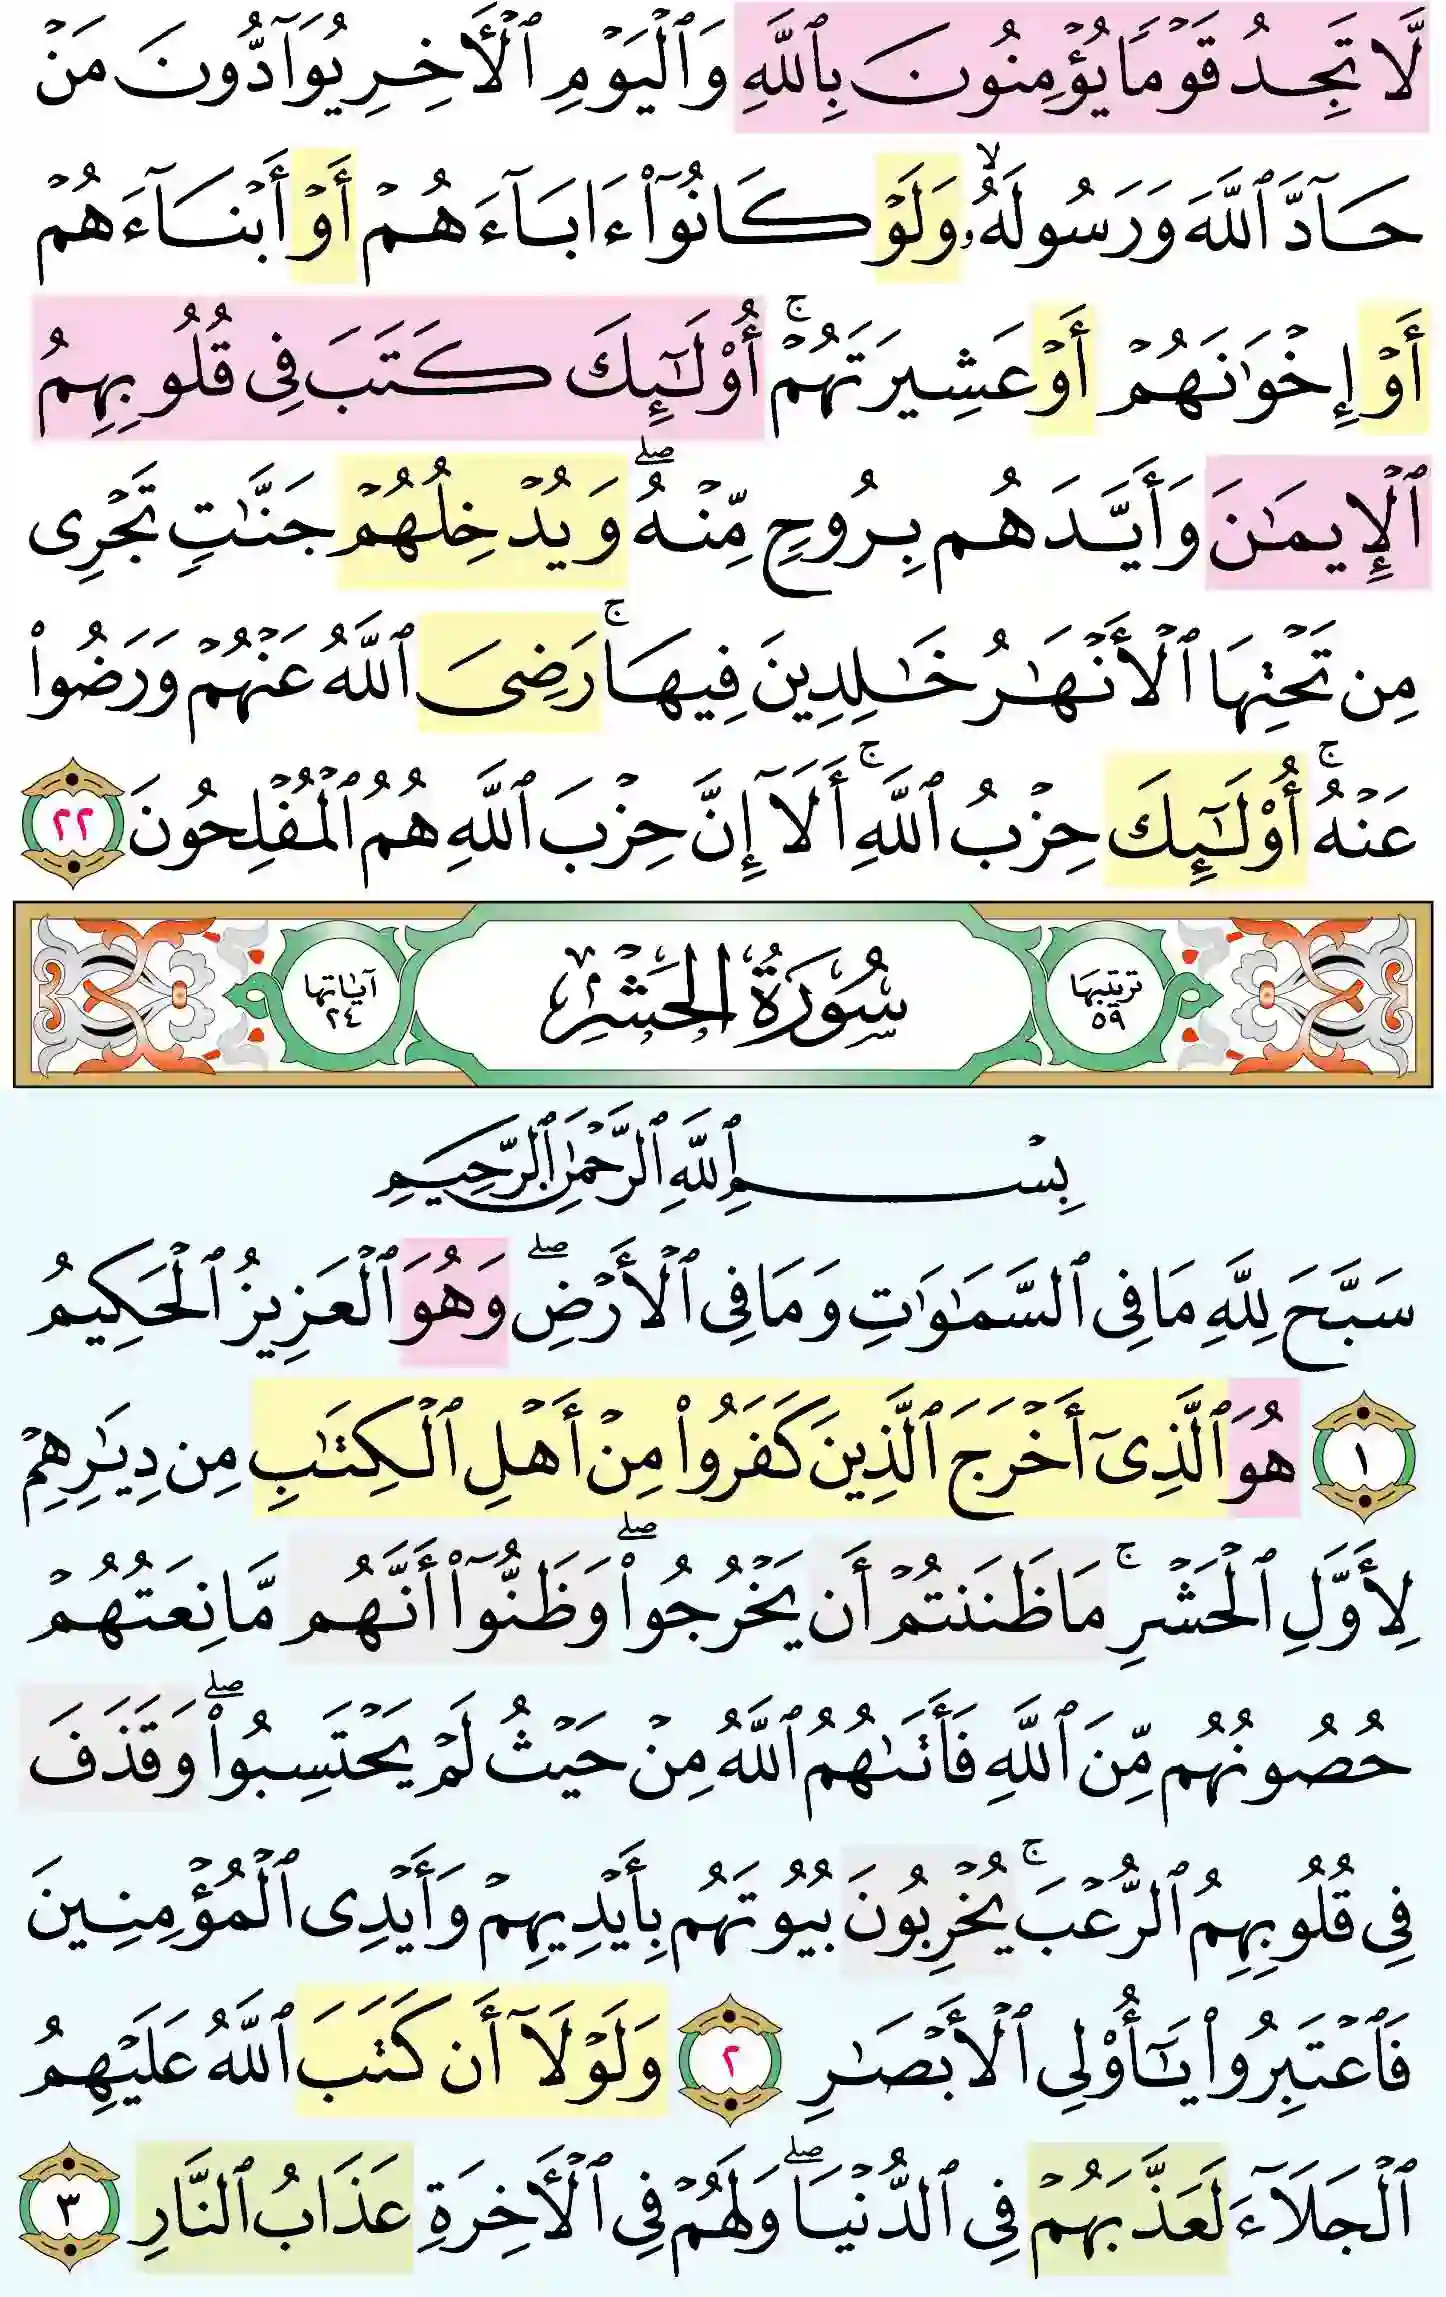 لَّا تَجِدُ قَوْمًا يُؤْمِنُونَ بِٱللَّهِ وَٱلْيَوْمِ ٱلْأَخِرِ يُوَآدُّونَ مَنْ
حَآدَّ ٱللَّهَ وَرَسُولَهُۥ ۙ وَلَوْ كَانُوٓا۟ ءَابَآءَهُمْ أَوْ أَبْنَآءَهُمْ
أَوْ إِخْوَٰنَهُمْ أَوْ عَشِيرَتَهُمْ ۚ أُو۟لَـٰٓئِكَ كَتَبَ فِى قُلُوبِهِمُ
ٱلْإِيمَـٰنَ وَأَيَّدَهُم بِرُوحٍ مِّنْهُ ۖ وَيُدْخِلُهُمْ جَنَّـٰتٍ تَجْرِى
مِن تَحْتِهَا ٱلْأَنْهَـٰرُ خَـٰلِدِينَ فِيهَا ۚ رَضِىَ ٱللَّهُ عَنْهُمْ وَرَضُوا۟
عَنْهُ ۚ أُو۟لَـٰٓئِكَ حِزْبُ ٱللَّهِ ۚ أَلَآ إِنَّ حِزْبَ ٱللَّهِ هُمُ ٱلْمُفْلِحُونَ ٢٢
ترتيبها ٥٩ سُورَةُ الحَشْرِ آياتها ٢٤
بِسْمِ ٱللَّهِ ٱلرَّحْمَـٰنِ ٱلرَّحِيمِ
سَبَّحَ لِلَّهِ مَا فِى ٱلسَّمَـٰوَٰتِ وَمَا فِى ٱلْأَرْضِ ۖ وَهُوَ ٱلْعَزِيزُ ٱلْحَكِيمُ
١ هُوَ ٱلَّذِىٓ أَخْرَجَ ٱلَّذِينَ كَفَرُوا۟ مِنْ أَهْلِ ٱلْكِتَـٰبِ مِن دِيَـٰرِهِمْ
لِأَوَّلِ ٱلْحَشْرِ ۚ مَا ظَنَنتُمْ أَن يَخْرُجُوا۟ ۖ وَظَنُّوٓا۟ أَنَّهُم مَّانِعَتُهُمْ
حُصُونُهُم مِّنَ ٱللَّهِ فَأَتَىٰهُمُ ٱللَّهُ مِنْ حَيْثُ لَمْ يَحْتَسِبُوا۟ ۖ وَقَذَفَ
فِى قُلُوبِهِمُ ٱلرُّعْبَ ۚ يُخْرِبُونَ بُيُوتَهُم بِأَيْدِيهِمْ وَأَيْدِى ٱلْمُؤْمِنِينَ
فَٱعْتَبِرُوا۟ يَـٰٓأُو۟لِى ٱلْأَبْصَـٰرِ ٢ وَلَوْلَآ أَن كَتَبَ ٱللَّهُ عَلَيْهِمُ
ٱلْجَلَآءَ لَعَذَّبَهُمْ فِى ٱلدُّنْيَا ۖ وَلَهُمْ فِى ٱلْأَخِرَةِ عَذَابُ ٱلنَّارِ ٣